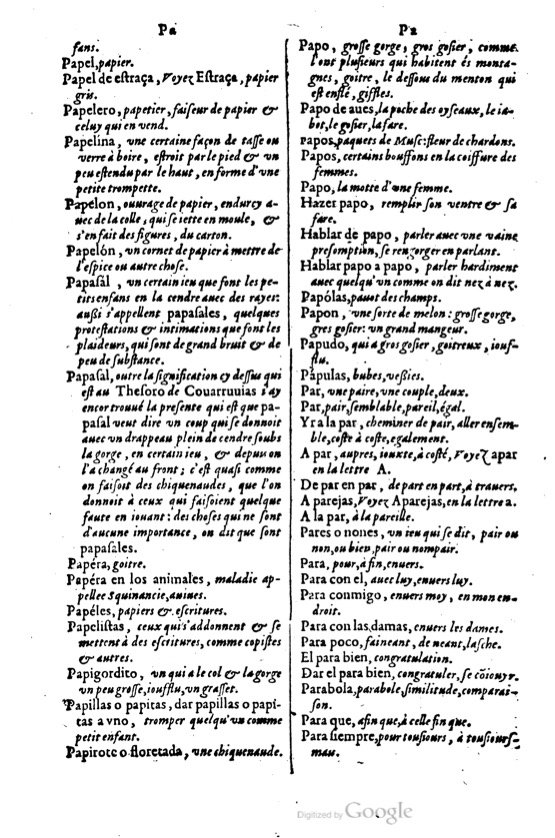 Pa
fans.
Papel, papier.
Papel de estraça, Voyez Estraça, papier
gris.
Papelero, papetier, faiseur de papier &
celuy qui en vend.
Papelina, vne certaine façon de tasse ou
verre à boire, estroit par le pied & vn
peu estendu par le haut, en forme d'vne
petite trompette.
Papelon, ouurage de papier, endurcy a-
uec de la colle, qui se iette en moule, &
s'en fait des figures, du carton.
Papelón, vn cornet de papier à mettre de
l'espice ou autre chose.
Papasal, vn certain ieu que font les pe-
tits enfans en la cendre auec des rayes:
aussi s'appellent papasales, quelques
protestations & intimations que font les
plaideurs, qui sont de grand bruit & de
peu de substance.
Papasal, outre la signification cy dessus qui
est au Thesoro de Couarruuias i'ay
encor trouué la presente qui est que pa-
pasal veut dire vn coup qui se donnoit
auec vn drappeau plein de cendre soubs
la gorge, en certain ieu, & depuis on
l'a changé au front; c'est quasi comme
on faisoit des chiquenaudes, que l'on
donnoit à ceux qui faisoient quelque
faute en iouant: des choses qui ne sont
d'aucune importance, on dit que sont
papasales.
Papéra, goitre.
Papéra en los animales, maladie ap-
pellee Squinancie, auiues.
Papéles, papiers & escritures.
Papelistas, ceux qui s'addonnent & se
mettent à des escritures, comme copistes
& autres.
Papigordito, vn qui a le col & la gorge
vn peu grosse, ioufflu, vn grasset.
Papillas o papitas, dar papillas o papi-
tas a vno, tromper quelqu'vn comme
petit enfant.
Papirote o floretada, vne chiquenaude.
Pa
Papo, grosse gorge, gros gosier, comme
l'ont plusieurs qui habitent és monta-
gnes, goitre, le dessous du menton qui
est enflé, giffles.
Papo de aues, la poche des oyseaux, le ia-
bot, le gosier, la fare.
Papos, paquets de Musc: fleur de chardons.
Papos, certains bouffons en la coiffure des
femmes.
Papo, la motte d'vne femme.
Hazer papo, remplir son ventre & sa
fare.
Hablar de papo, parler auec vne vaine
presomption, se rengorger en parlant.
Hablar papo a papo, parler hardiment
auec quelqu'vn comme on dit nez à nez.
Papólas, pauot des champs.
Papon, vne sorte de melon: grosse gorge,
gros gosier: vn grand mangeur.
Papudo, qui a gros gosier, goitreux, iouf-
flu.
Pápulas, bubes, vessies.
Par, vne paire, vne couple, deux.
Par, pair, semblable, pareil, égal.
Yr a la par, cheminer de pair, aller ensem-
ble, coste à coste, egalement.
A par, aupres, iouxte, à costé, Voyez apar
en la lettre A.
De par en par, de part en part, à trauers.
A parejas, Voyez Aparejas, en la lettre a.
A la par, à la pareille.
Pares o nones, vn ieu qui se dit, pair ou
non, ou bien, pair ou nompair.
Para, pour, à fin, enuers.
Para con el, auec luy, enuers luy.
Para conmigo, enuers moy, en mon en-
droit.
Para con las damas, enuers les dames.
Para poco, faineant, de neant, lasche.
El para bien, congratulation.
Dar el para bien, congratuler, se cōioüyr.
Parabola, parabole, similitude, comparai-
son.
Para que, afin que, à celle fin que.
Para siempre, pour tousiours, à tousiours-
mau.
Digitized by Google